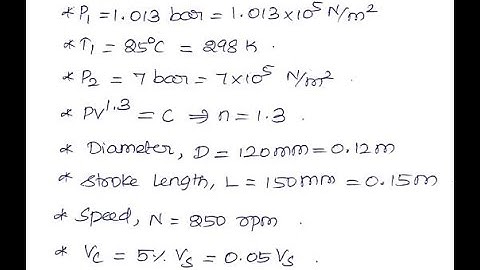 * P₁ = 1.013 bar = 1.013×10⁵ N/m²
* T₁ = 25°C = 298 K .
* P₂ = 7 bar = 7×10⁵ N/m² .
* PV¹·³ = C ⇒ n = 1.3 .
* Diameter, D = 120mm = 0.12m
* Stroke Length, L = 150mm = 0.15m
* Speed, N = 250 rpm .
* Vc = 5% Vs = 0.05 Vs .